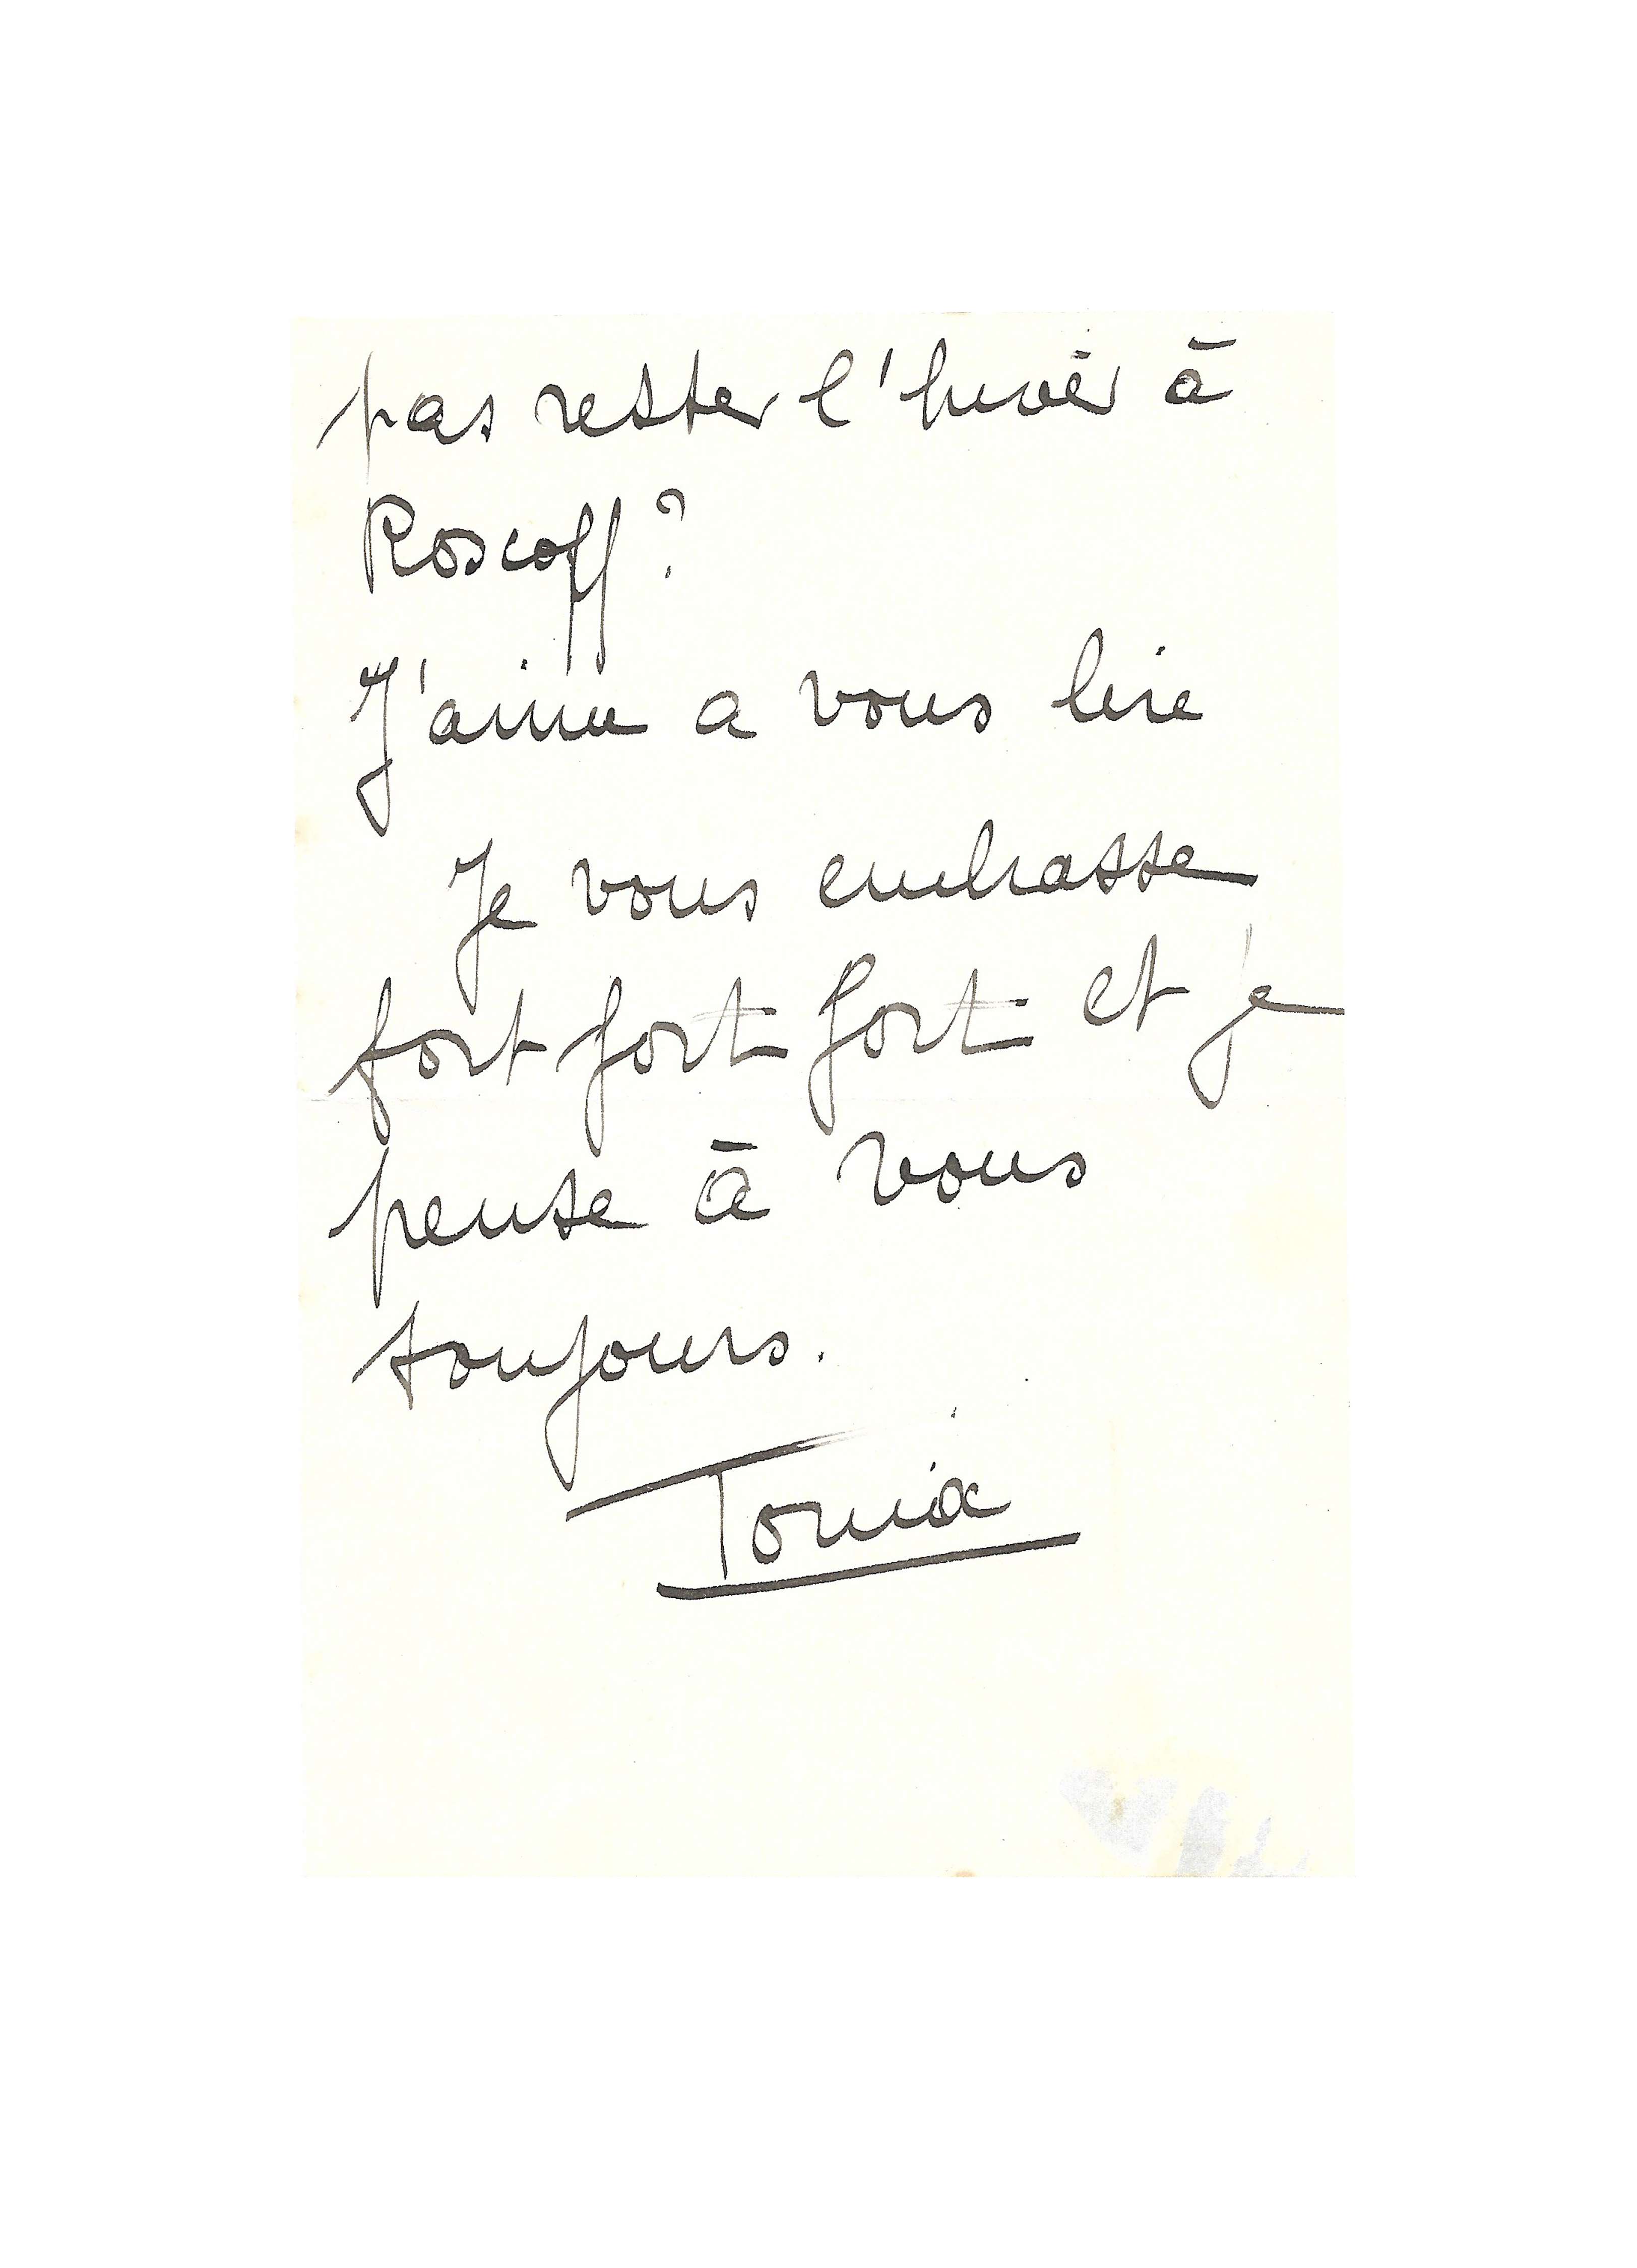 pas rester l'hiver à
Roscoff ?
J'aime a vous lire
Je vous embrasse
fort fort fort et je
pense à vous
toujours.
Tonia